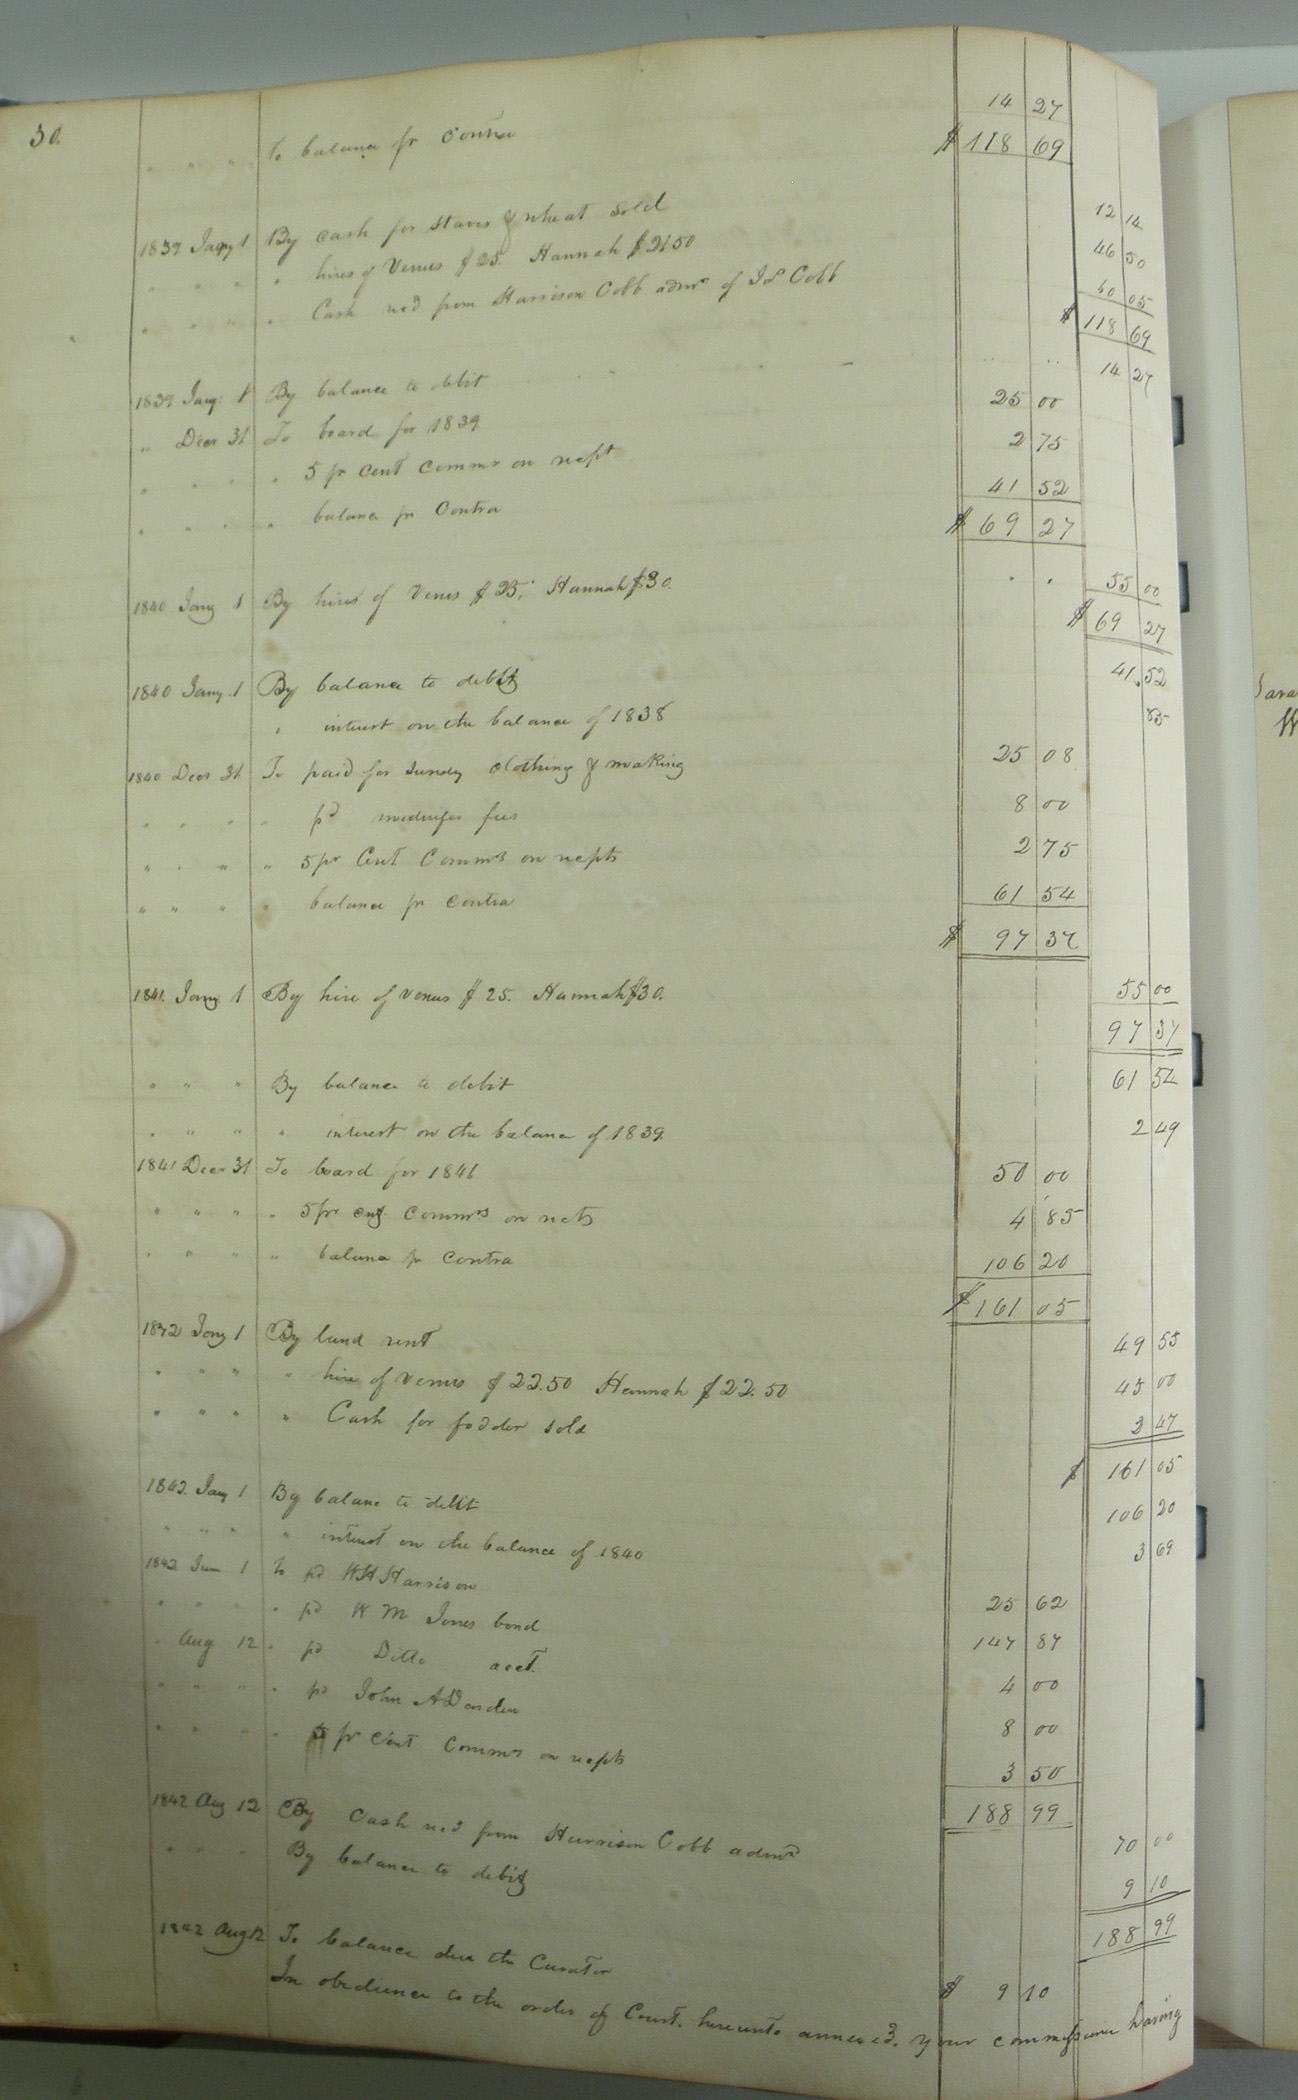 30.
14 27
" " " To balance pr Contra $ 118 69
1839 Jany 1 By cash for staves & wheat sold 12 14
" " " " hires of Venus $25. Hannah $21 50 46 50
" " " " Cash recd from Harrison Cobb admr of Cobb 60 05
$ 118 69
1839 Jany 1 By balance to debit 14 27
" Decr 31 To board for 1839 25 00
" " " " 5 pr cent comms on rcpt 2 75
" " " " balance pr Contra 41 52
$ 69 27
1840 Jany 1 By hires of Venus $25, Hannah $30. 55 00
$ 69 27
1840 Jany. 1 By balance to debit 41.52
" interest on the balance of 1838 85
1840 Decr 31 To paid for sundy clothing & making 25 08
" " " " pd midwifes fees 8 00
" " " " 5 pr Cent. Comms on recpts 2 75
" " " " balance pr contra 61 54
$ 97 37
1841. Jany 1 By hire of venus $25. Hannah $30. 55 00
97 37
" " " By balance to debit 61 54
" " " " interest on the balance of 1839 2 49
1841 Decr 31 To board for 1841 50 00
" " " " 5 pr cent comms on rects 4 85
" " " " balance pr contra 106 20
$ 161 05
1842 Jany 1 By land rent 49 55
" " " " hire of venus $22.50 Hannah $22.50 45 00
" " " " Cash for fodder sold 2 47
$ 161 05
1842. Jany 1 By balance to debit 106 20
" " " " interest on the balance of 1840 3 69
1842 June 1 To pd W H Harrison 25 62
" " " " pd W M Jones bond 147 87
" Aug 12 " pd Ditto acct. 4 00
" " " " pd John A Darden 8 00
" " " " 5 pr Cent Comms on recpts 3 50
188 99
1842 Aug 12 By Cash recd from Harrison Cobb admr 70 00
" " " By balance to debit 9 10
188 99
1842 Aug 12 To balance due the Curator $ 9 10
In obedience to the order of Court. hereunto annexed. your commissioner having